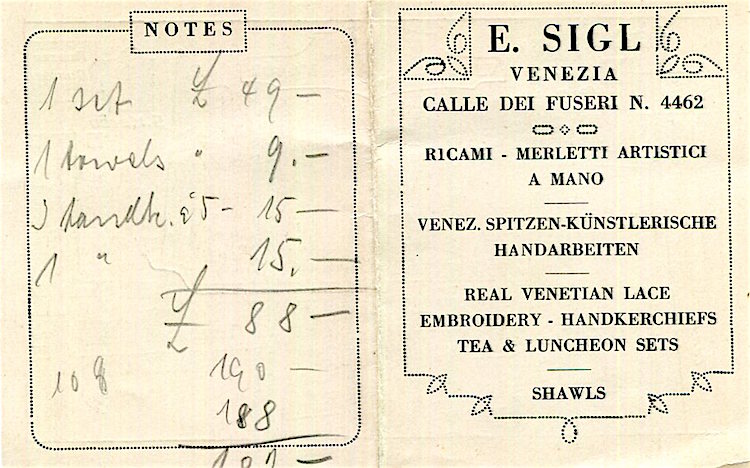 NOTES
1 set £ 49 —
1 towels " 9.—
3 handk. à 5 - 15 —
1 " 15.—
£ 88 —
190 —
188
E. SIGL
VENEZIA
CALLE DEI FUSERI N. 4462
RICAMI - MERLETTI ARTISTICI
A MANO
VENEZ. SPITZEN-KÜNSTLERISCHE
HANDARBEITEN
REAL VENETIAN LACE
EMBROIDERY - HANDKERCHIEFS
TEA & LUNCHEON SETS
SHAWLS